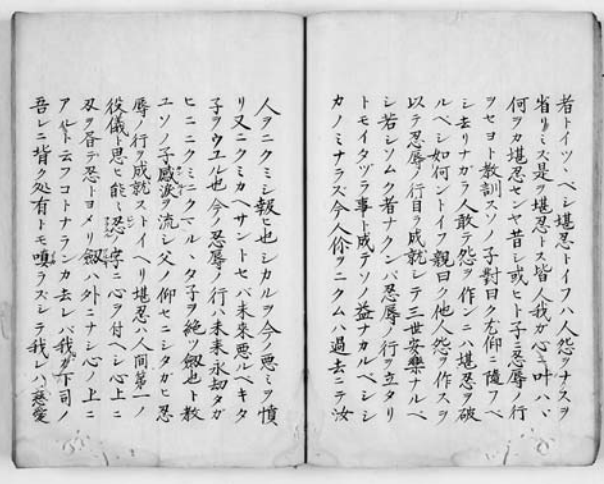 者トイツヽベシ堪忍トイフハ人怨ヲナスヲ
省リミス是ヲ堪忍トス皆人我ガ心ニ叶ハヽ
何ヲカ堪忍センヤ昔シ或ヒト子ニ忍辱ノ行
ヲセヨト教訓スソノ子對曰ク尤仰ニ隨フベ
シ去リナガラ人敢テ怨ヲ作ンニハ堪忍ヲ破
ルベシ如何ントイフ親曰ク他人怨ヲ作スヲ
以テ忍辱ノ行目ヲ成就シテ三世安樂ナルベ
シ若シソムク者ナクンバ忍辱ノ行ヲ立タリ
トモイタヅラ事ト成テソノ益ナカルベシシ
カノミナラズ今人你ヲニクムハ過去ニテ汝
人ヲニクミシ報ヒ也シカルヲ今ノ悪ミヲ憤
リ又ニクミカヘサントセバ未來悪ルベキタ
子ヲウエル也今ノ忍辱ノ行ハ未来永劫タガ
ヒニニクミニクマルヽタ子ヲ絶ツ劔也ト教
ユソノ子感涙ヲ流シ父ノ仰セニシタガヒ忍
辱ノ行ヲ成就ストイヘリ堪忍ハ人間第一ノ
役儀ト思ヒ能ミ忍ノ字ニ心ヲ付ヘシ心上ニ
刄ヲ吞テ忍トヨメリ劔ハ外ニナシ心ノ上ニ
アルト云フコトナランカ去レバ我ガ下司ノ
吾レニ背ク処有トモ嗔ラズシテ我レハ慈愛